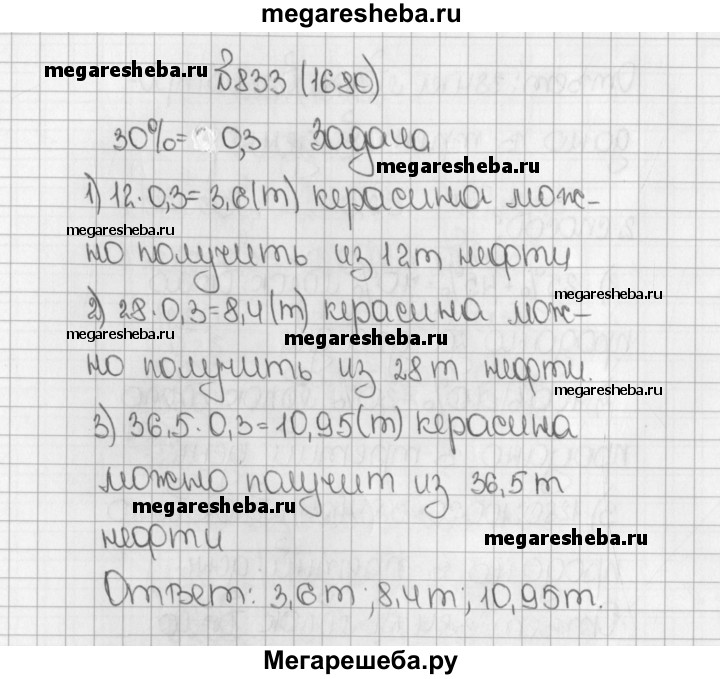 megaresheba.ru
megaresheba.ru
833 (1680)
30% = 0,3 Задача
megaresheba.ru
1) 12·0,3=3,6(т) керасина мож-
megaresheba.ru
но получить из 12т нефти
megaresheba.ru
2) 28·0,3=8,4(т) керасина мож-
megaresheba.ru
megaresheba.ru
но получить из 28т нефти.
megaresheba.ru
3) 36,5·0,3=10,95(т) керасина
можно получит из 36,5т
megaresheba.ru
нефти
megaresheba.ru
Ответ: 3,6т; 8,4т; 10,95т.
Мегарешеба.ру